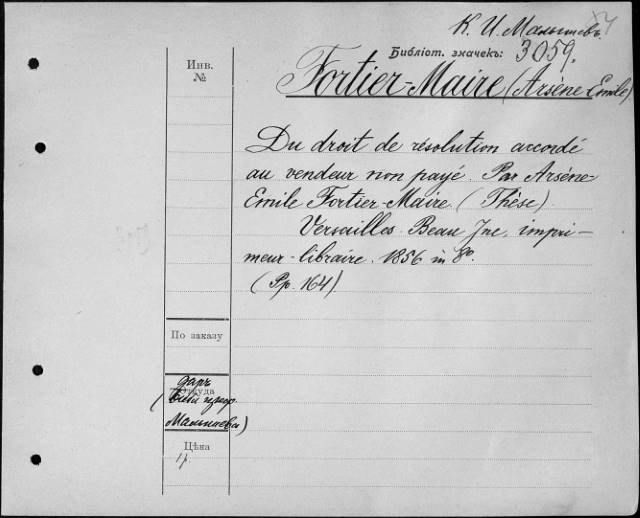 К. И. Малышевъ.
Библіот. значекъ: 3059.
Инв.
№
Fortier-Maire (Arsène-Emile)
Du droit de résolution accordé
au vendeur non payé. Par Arsène-
Emile Fortier-Maire. (Thèse).
Versailles. Beau Jne. impri-
meur-libraire. 1856 in 8º.
(Pp. 164).
По заказу
даръ
Откуда
(библ. проф.
Малышева)
Цѣна
1 р.